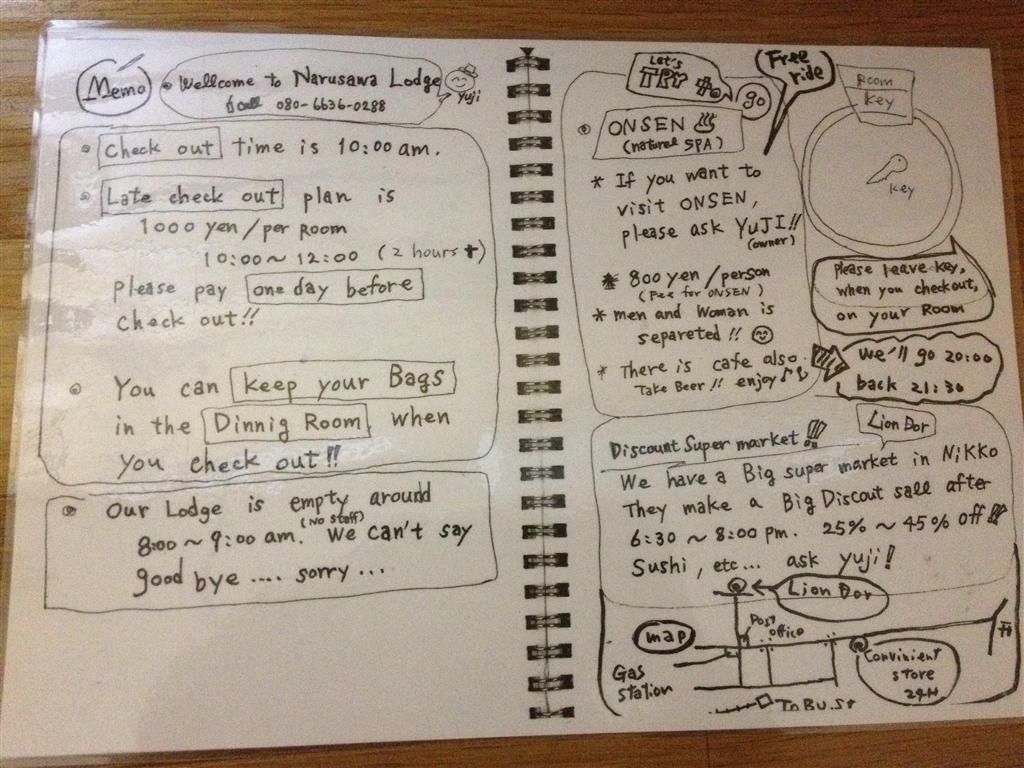 Memo
Wellcome to Narusawa Lodge
call 080-6636-0288
Yuji
Check out time is 10:00 am.
Late check out plan is
1000 yen/per Room
10:00~12:00 (2 hours+)
Please pay one day before
check out!!
You can keep your Bags
in the Dinnig Room when
you check out!!
Our Lodge is empty around
(No staff)
8:00~9:00 am. We can't say
good bye .... sorry ...
Let's
TRY to
go
Free
ride
ONSEN
(natural SPA)
* If you want to
visit ONSEN,
please ask YuJI!!
(owner)
* 800 yen/person
(Fee for ONSEN)
* men and Woman is
separeted!!
* There is cafe also
Take Beer!! enjoy♪
Room
Key
Key
Please leave key,
when you checkout,
on your Room
we'll go 20:00
back 21:30
Lion Dor
Discount Super market!!!
We have a Big super market in Nikko
They make a Big Discout sall after
6:30~8:00 pm. 25%~45% off!!!
Sushi, etc... ask yuji!
Lion Dor
map
Post
office
Gas
Station
Convinient
store
24H
To Bu. St